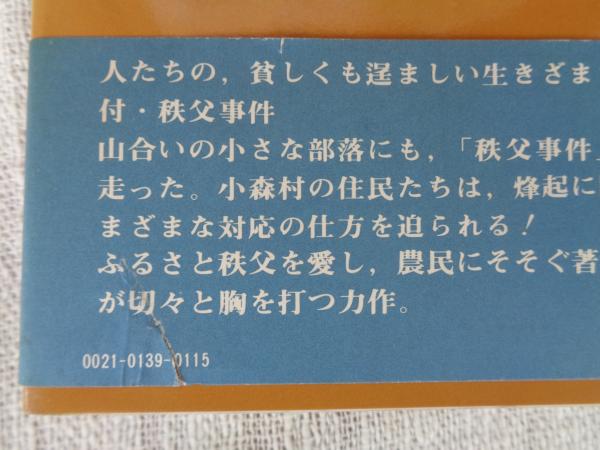 人たちの，貧しくも逞ましい生きざま
付・秩父事件
山合いの小さな部落にも，「秩父事件」
走った。小森村の住民たちは，烽起に
まざまな対応の仕方を迫られる！
ふるさと秩父を愛し，農民にそそぐ著
が切々と胸を打つ力作。
0021-0139-0115